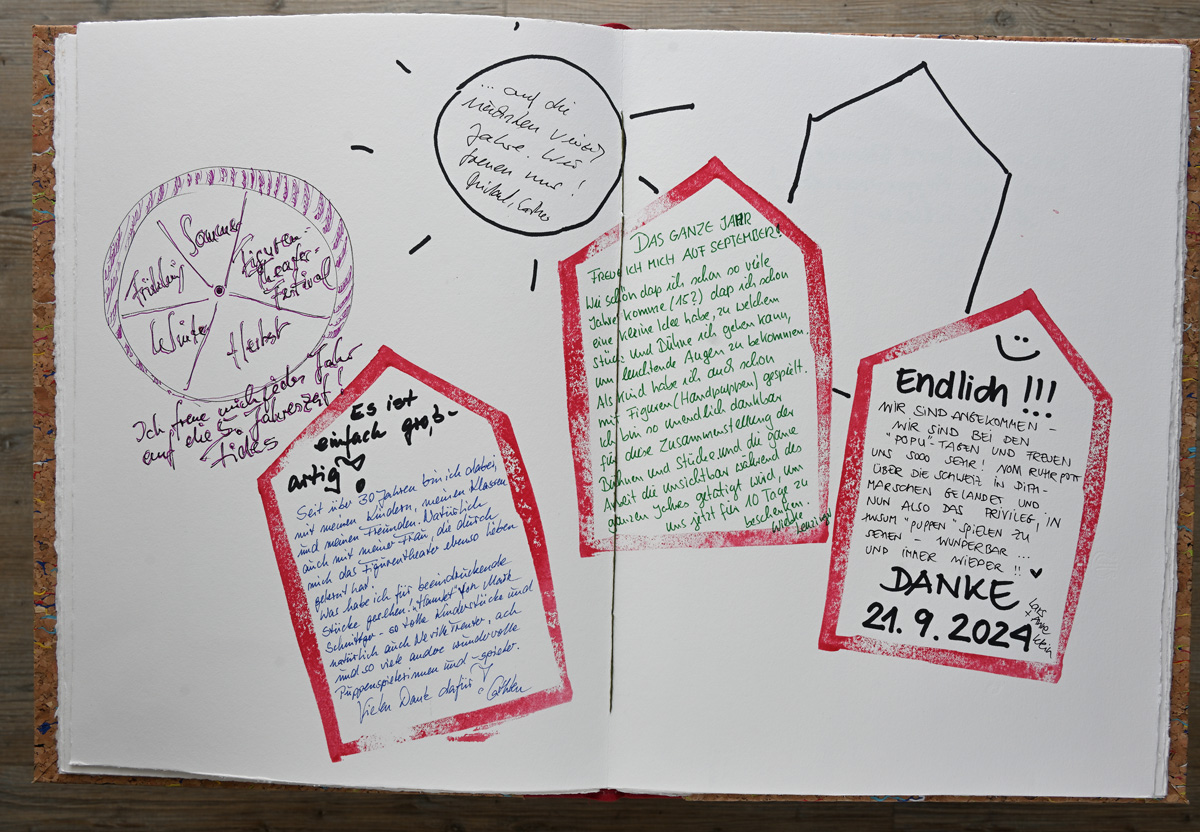 Sommer
Figuren-
theater-
Festival
Herbst
Winter
Frühling
Ich freue mich jedes Jahr
auf die 5. Jahreszeit!
... auf die
nächsten vierzig
Jahre. Wir
freuen uns!
Es ist
einfach groß-
artig!
Seit über 30 Jahren bin ich dabei,
mit meinen Kindern, meinen Klassen
und meinen Freunden. Natürlich
auch mit meiner Frau, die durch
mich das Figurentheater ebenso lieben
gelernt hat.
Was habe ich für beeindruckende
Stücke gesehen! "Hamlet" von Mark
Schnittger - so tolle Kinderstücke und
natürlich auch Neville Tranter, ach
und so viele andere wundervolle
Puppenspielerinnen und -spieler.
Vielen Dank dafür!
DAS GANZE JAHR
FREUE ICH MICH AUF SEPTEMBER!
Wie schön daß ich schon so viele
Jahre komme (15?) daß ich schon
eine kleine Idee habe, zu welchem
Stück und Bühne ich gehen kann,
um leuchtende Augen zu bekommen.
Als Kind habe ich auch schon
mit Figuren (Handpuppen) gespielt.
Ich bin so unendlich dankbar
für diese Zusammenstellung der
Bühnen und Stücke und die ganze
Arbeit die unsichtbar während des
ganzen Jahres getätigt wird, um
uns jetzt für 10 Tage zu
beschenken.
Wiebke
ENDLICH !!!
WIR SIND ANGEKOMMEN -
WIR SIND BEI DEN
"POPU"-TAGEN UND FREUEN
UNS SOOO SEHR! VOM RUHRPOTT
ÜBER DIE SCHWEIZ IN DITH-
MARSCHEN GELANDET UND
NUN ALSO DAS PRIVILEG, IN
HUSUM "PUPPEN" SPIELEN ZU
SEHEN - WUNDERBAR ...
UND IMMER WIEDER !! ♥
DANKE
21.9.2024
Lars